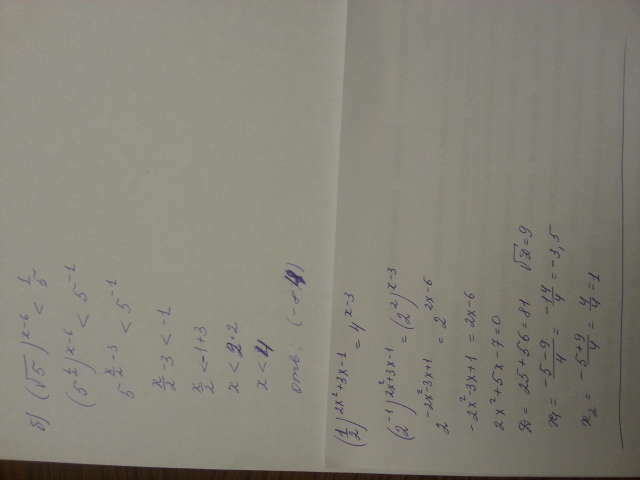 б) (√5)^(x-6) < 1/5
(5^(1/2))^(x-6) < 5^(-1)
5^(x/2 - 3) < 5^(-1)
x/2 - 3 < -1
x/2 < -1+3
x < 2·2
x < 4
отв: (-∞ 4)
(1/2)^(2x²+3x-1) = 4^(x-3)
(2^(-1))^(2x²+3x-1) = (2²)^(x-3)
2^(-2x²-3x+1) = 2^(2x-6)
-2x²-3x+1 = 2x-6
2x²+5x-7=0
D = 25+56=81 √D=9
x₁ = (-5-9)/4 = -14/4 = -3,5
x₂ = (-5+9)/4 = 4/4 = 1